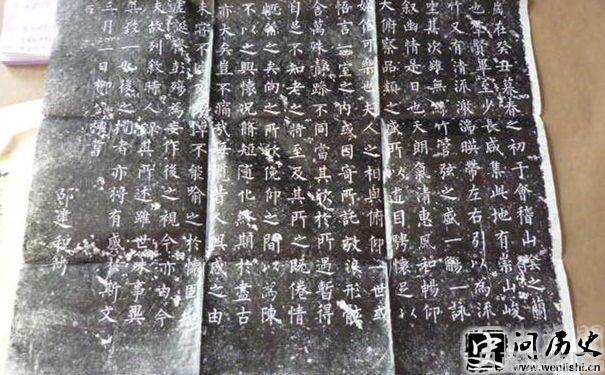 歲在癸丑暮春之初于會稽山陰之蘭
也羣賢畢至少長咸集此地有崇山峻
竹又有清流激湍映帶左右引以為流
坐其次雖無絲竹管弦之盛一觴一詠
叙幽情是日也天朗氣清惠風和暢仰
大俯察品類之盛所以遊目騁懷足以
娛信可樂也夫人之相與俯仰一世或
悟言一室之内或因寄所託放浪形骸
舍萬殊靜躁不同當其欣於所遇暫得
自足不知老之將至及其所之既倦情
慨係之矣向之所欣俛仰之間以為陳
不以之興懷况脩短隨化終期於盡古
亦大矣豈不痛哉每覽昔人興感之由
未嘗不臨文嗟悼不能喻之於懷固知
虛誕齊彭殤為妄作後之視今亦由今
夫故列叙時人錄其所述雖世殊事異
其致一也後之覽者亦將有感於斯文
三月一日柳公權書
邵建和
问历史
www.wenlishi.cn